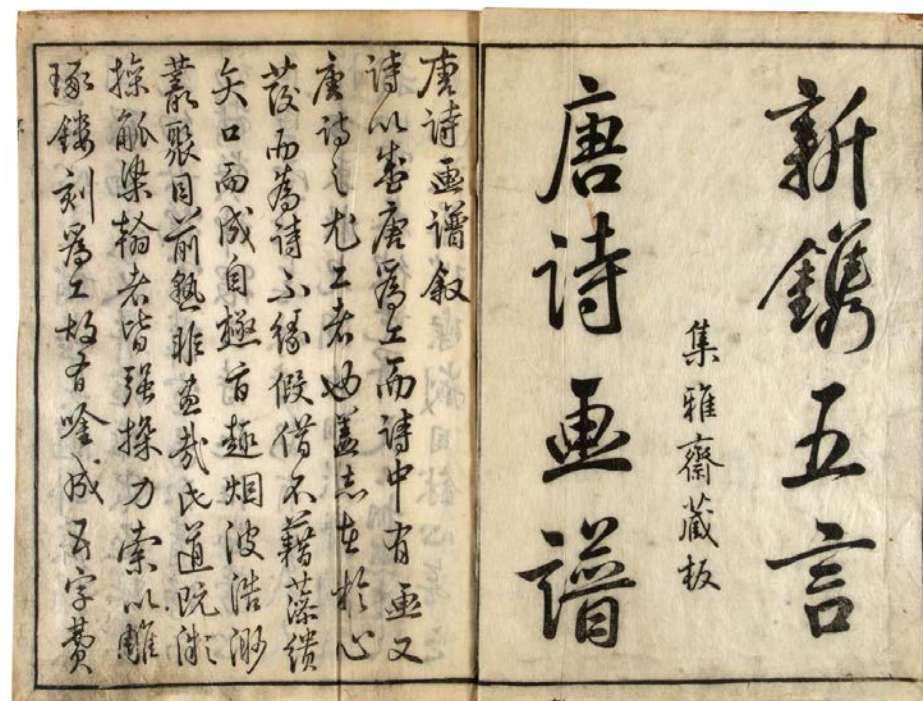 新鐫五言
集雅齋藏板
唐詩畫譜
唐詩畫譜叙
詩以盛唐爲工而詩中有畫又
唐詩之尤工者也蓋志在於心
發而為詩不緣假借不藉藻繢
矢口而成自極旨趣烟波浩渺
叢聚目前孰非畫哉氏道既漓
操觚染翰者皆强操力索以雕
琢鏤刻爲工故有唫成五字費